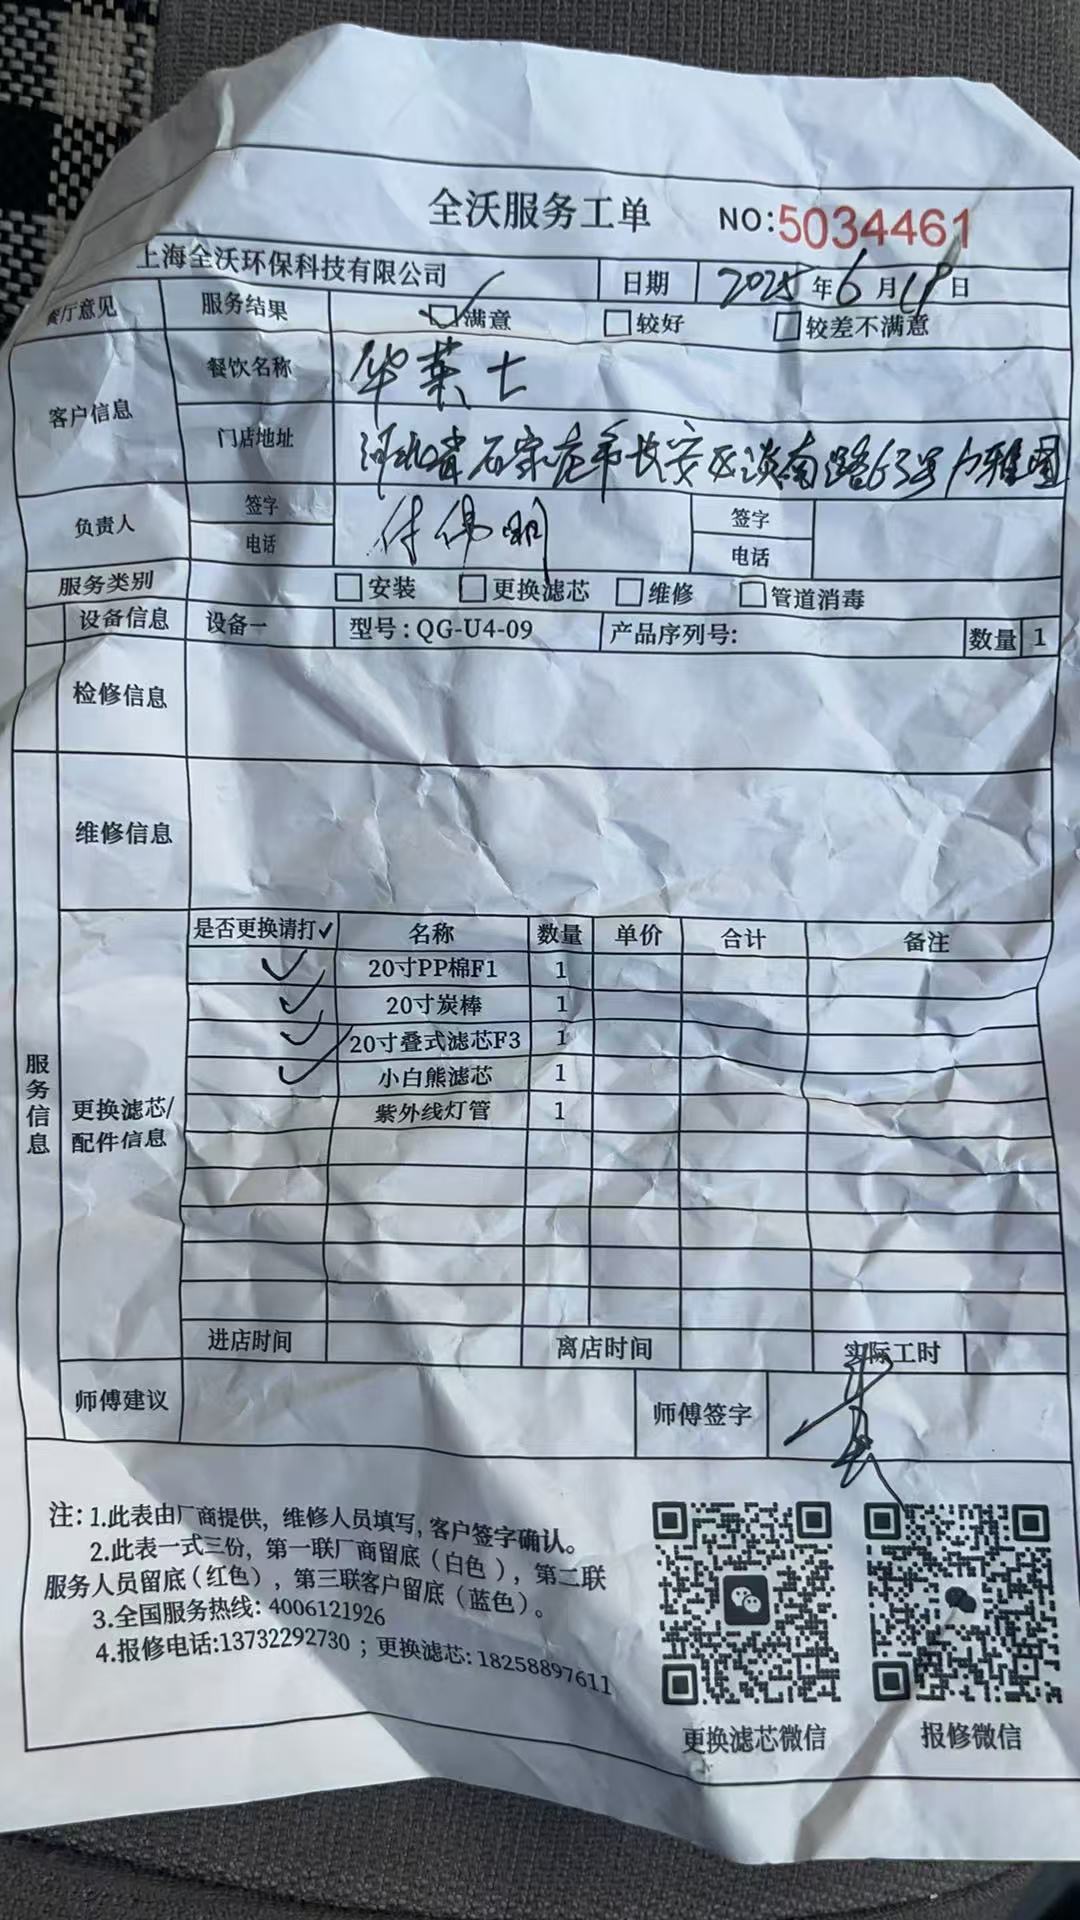 全沃服务工单 NO:5034461
上海全沃环保科技有限公司 日期 2025年6月19日
餐厅意见 服务结果 满意 较好 较差不满意
客户信息 餐饮名称 华莱士
门店地址 河北省石家庄市长安区谈南路63号
负责人 签字 付伟明 签字
电话 电话
服务类别 安装 更换滤芯 维修 管道消毒
设备信息 设备一 型号:QG-U4-09 产品序列号: 数量 1
检修信息
维修信息
服务信息
更换滤芯/
配件信息
是否更换请打✓ 名称 数量 单价 合计 备注
✓ 20寸PP棉F1 1
✓ 20寸炭棒 1
✓ 20寸叠式滤芯F3 1
✓ 小白熊滤芯 1
紫外线灯管 1
进店时间 离店时间 实际工时
师傅建议 师傅签字
注:1.此表由厂商提供,维修人员填写,客户签字确认。
2.此表一式三份,第一联厂商留底(白色),第二联
服务人员留底(红色),第三联客户留底(蓝色)。
3.全国服务热线:4006121926
4.报修电话:13732292730;更换滤芯:18258897611
更换滤芯微信 报修微信